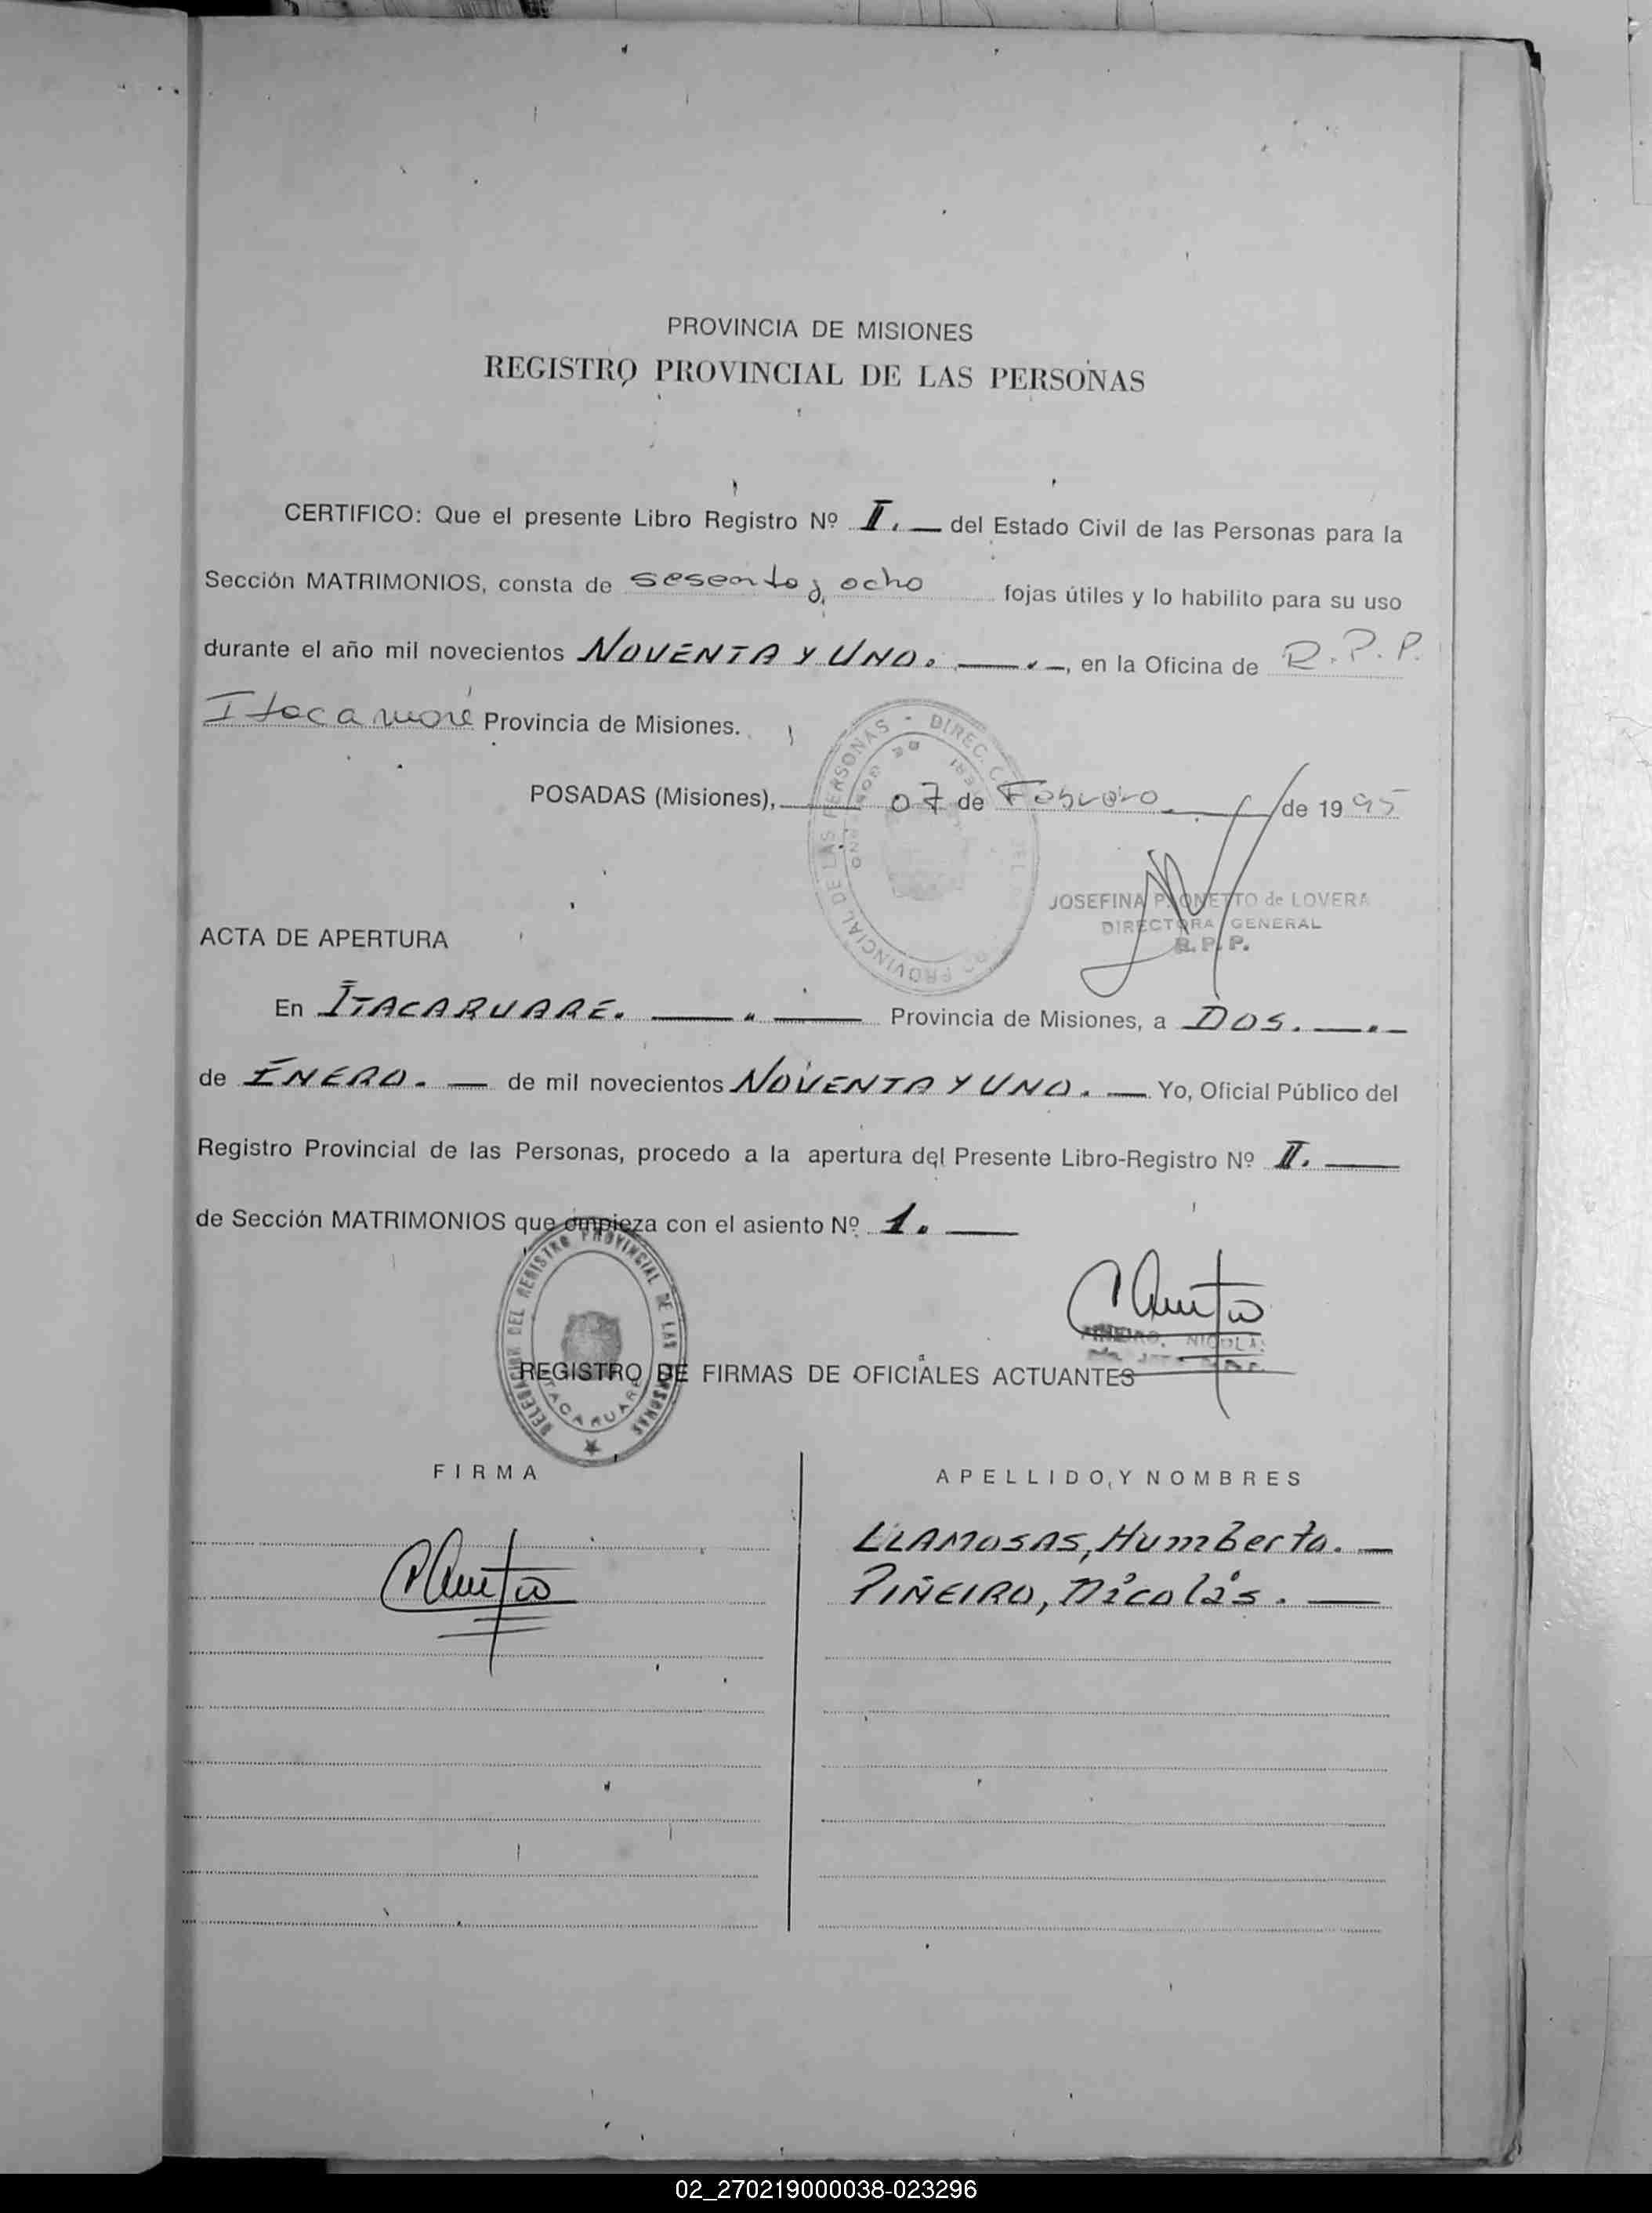 PROVINCIA DE MISIONES
REGISTRO PROVINCIAL DE LAS PERSONAS
CERTIFICO: Que el presente Libro Registro Nº II. — del Estado Civil de las Personas para la
Sección MATRIMONIOS, consta de sesenta y ocho fojas útiles y lo habilito para su uso
durante el año mil novecientos NOVENTA Y UNO. — . —, en la Oficina de R.P.P.
Itacaruaré Provincia de Misiones.
POSADAS (Misiones), 07 de Febrero de 1995
JOSEFINA P de LOVERA
DIRECTORA GENERAL
R.P.P.
ACTA DE APERTURA
En ITACARUARE. — . — Provincia de Misiones, a DOS. — . —
de ENERO. — de mil novecientos NOVENTA Y UNO. — Yo, Oficial Público del
Registro Provincial de las Personas, procedo a la apertura del Presente Libro-Registro Nº II. —
de Sección MATRIMONIOS que empieza con el asiento Nº 1. —
DELEGACION DEL REGISTRO PROVINCIAL DE LAS PERSONAS
ITACARUARE
PIÑEIRO, NICOLAS
REGISTRO DE FIRMAS DE OFICIALES ACTUANTES
FIRMA
APELLIDO Y NOMBRES
LLAMOSAS, Humberto. —
PIÑEIRO, Nicolás. —
02_270219000038-023296